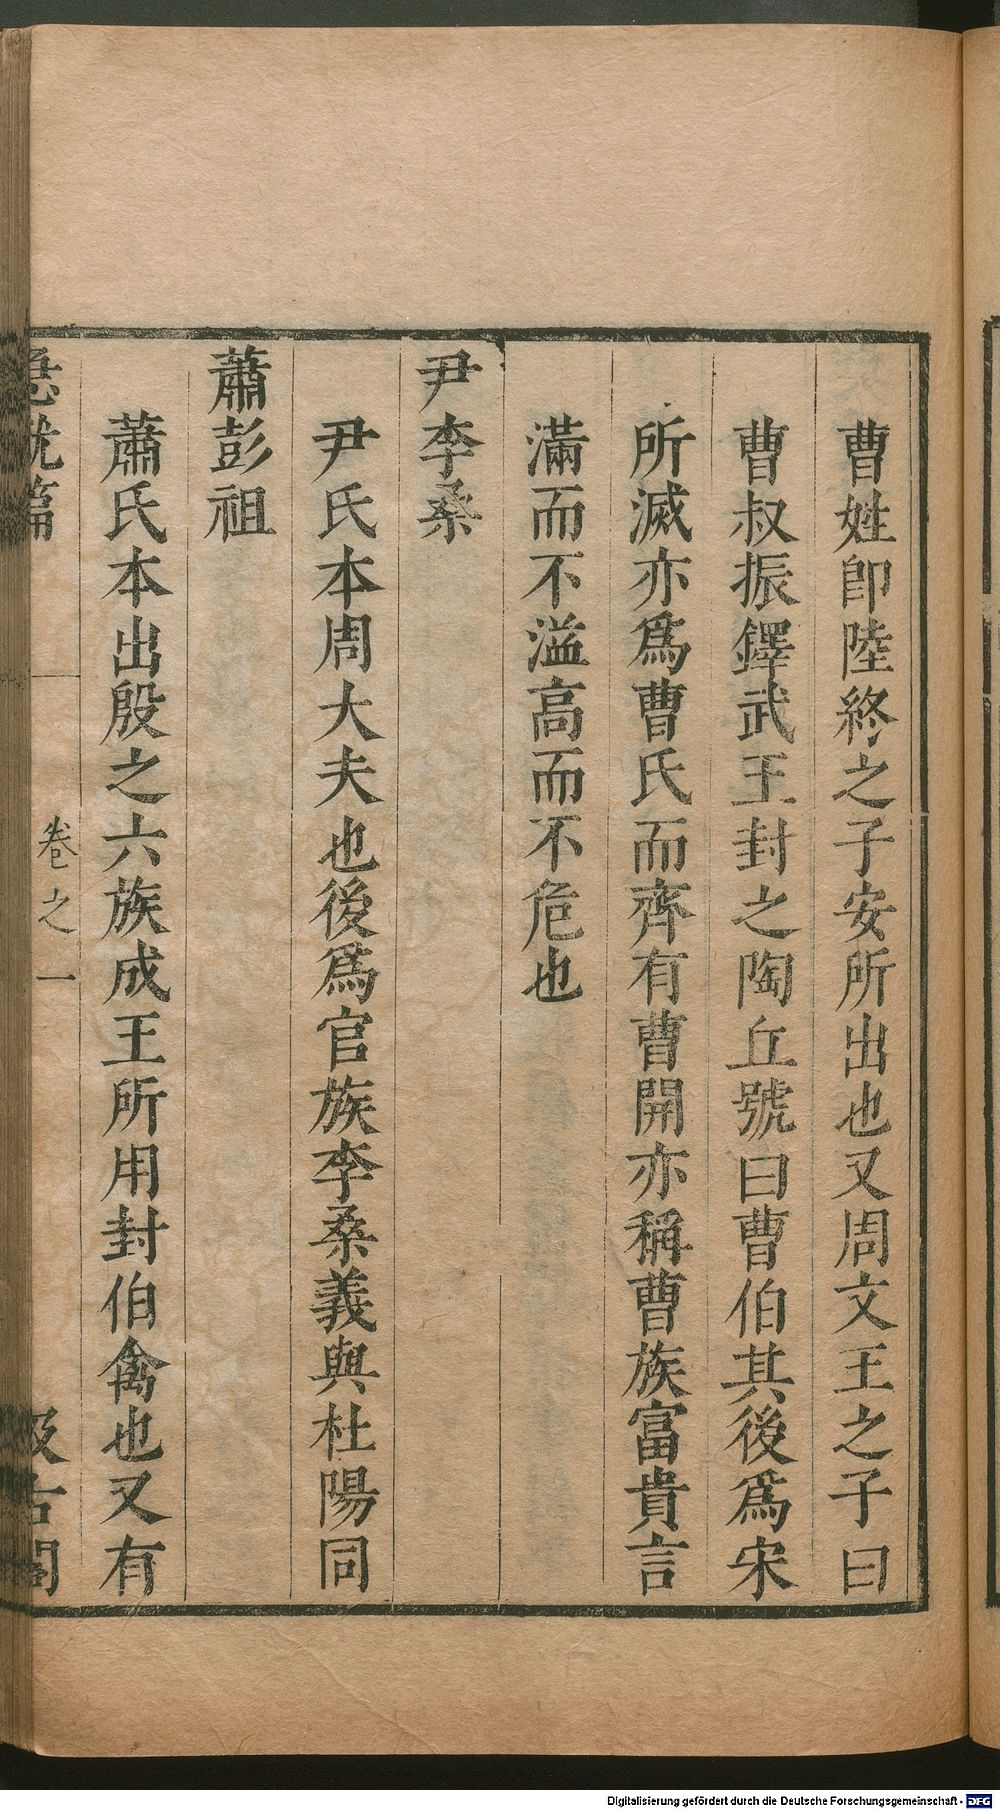 曹姓卽陸終之子安所出也又周文王之子曰
曹叔振鐸武王封之陶丘號曰曹伯其後爲宋
所滅亦爲曹氏而齊有曹開亦稱曹族富貴言
滿而不溢高而不危也
尹李桑
尹氏本周大夫也後爲官族李桑義與杜陽同
蕭彭祖
蕭氏本出殷之六族成王所用封伯禽也又有
急就篇 卷之一 汲古閣
Digitalisierung gefördert durch die Deutsche Forschungsgemeinschaft - DFG